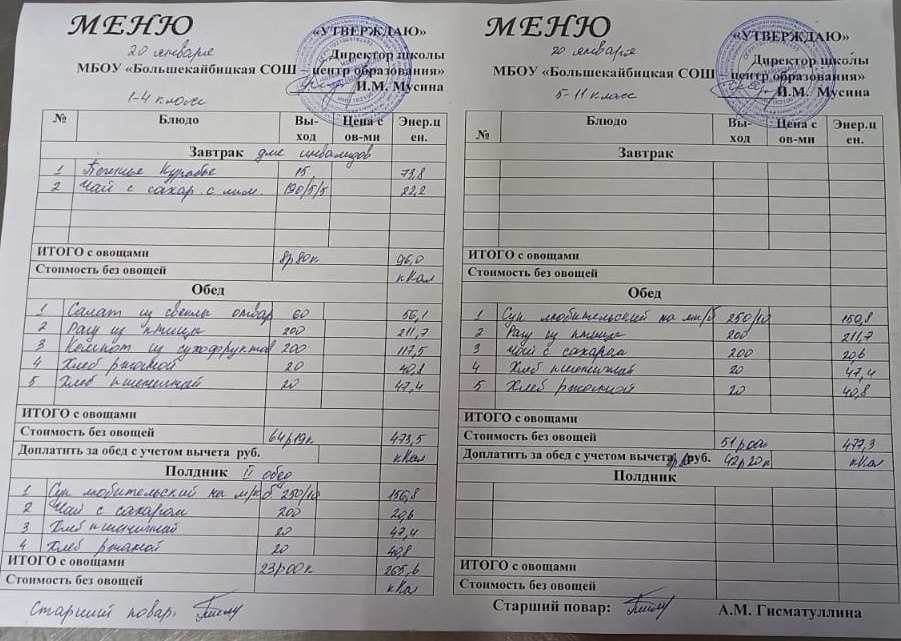 МЕНЮ
«УТВЕРЖДАЮ»
20 января
Директор школы
МБОУ «Большекайбицкая СОШ – центр образования»
И.М. Мусина
1-4 класс
№ Блюдо Вы-ход Цена с ов-ми Энер.ц ен.
Завтрак для инвалидов
1 Печенье Курабье 15 73,8
2 Чай с сахар. с лим. 190/5/5 22,2
ИТОГО с овощами 8р80к 96,0
Стоимость без овощей кКал
Обед
1 Салат из свеклы отвар 60 56,1
2 Рагу из птицы 200 211,7
3 Компот из сухофруктов 200 117,5
4 Хлеб ржаной 20 40,8
5 Хлеб пшеничный 20 47,4
ИТОГО с овощами
Стоимость без овощей 64р19к 473,5
Доплатить за обед с учетом вычета руб. кКал
Полдник II обед
1 Суп любительский на м/к б 250/10 156,8
2 Чай с сахаром 200 20,6
3 Хлеб пшеничный 20 47,4
4 Хлеб ржаной 20 40,8
ИТОГО с овощами 23р00к 265,6
Стоимость без овощей кКал
Старший повар:
МЕНЮ
«УТВЕРЖДАЮ»
20 января
Директор школы
МБОУ «Большекайбицкая СОШ – центр образования»
И.М. Мусина
5-11 класс
№ Блюдо Вы-ход Цена с ов-ми Энер.ц ен.
Завтрак
ИТОГО с овощами
Стоимость без овощей
Обед
1 Суп любительский на м/к/б 250/10
2 Рагу из птицы 200 211,7
3 Чай с сахаром 200 20,6
4 Хлеб пшеничный 20 47,4
5 Хлеб ржаной 20 40,8
ИТОГО с овощами
Стоимость без овощей 51р00к 477,3
Доплатить за обед с учетом вычета руб. 42р20к кКал
Полдник
ИТОГО с овощами
Стоимость без овощей
Старший повар: А.М. Гисматуллина